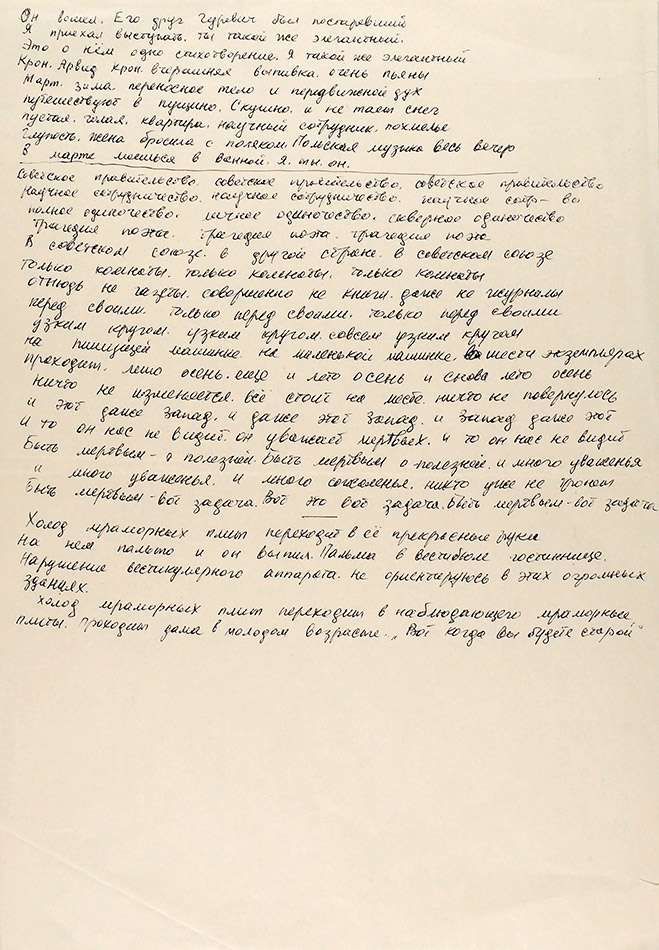 Он вошел. Его друг Гуревич был постаревший
Я приехал выступать. ты такой же элегантный.
Это о нём одно стихотворение. Я такой же элегантный
Крон. Арвид Крон. вчерашняя выпивка. очень пьяны
Март. зима. переносное тело и передвижной дух
путешествуют в пущино. Скушно. и не тает снег
пустая. голая. квартира. научный сотрудник. похмелье
Глупость. жена бросила с поляком. Польская музыка весь вечер
В марте моешься в ванной. я. ты. он.
Советское правительство. советское правительство. советское правительство
научное сотрудничество. научное сотрудничество. научное сотр-во
полное одиночество. личное одиночество. скверное одиночество
трагедия поэта. трагедия поэта. трагедия поэта
В советском союзе. в другой стране. в советском союзе
только комнаты. только комнаты. только комнаты
отнюдь не газеты. совершенно не книги. даже не журналы
перед своими. только перед своими. только перед своими
узким кругом. узким кругом. совсем узким кругом
на пишущей машинке. на маленькой машинке. в шести экземплярах
проходит. лето осень. ещё и лето осень и снова лето осень
ничто не изменяется. всё стоит на месте. ничто не повернулось
и этот даже запад. и даже этот запад. и запад даже этот
и то он нас не видит. он уважает мертвых. и то он нас не видит
Быть мертвым - о полезней. Быть мертвым о полезней. и много уваженья
и много уваженья. и много сожаленья. никто уже не тронет
Быть мертвым - вот задача. Вот это вот задача. Быть мертвым - вот задача
Холод мраморных плит переходит в её прекрасные руки
На нем пальто и он выпил. Пальма в вестибюле гостиннице.
Нарушение вестикулярного аппарата. не ориентируюсь в этих огромных
зданиях.
Холод мраморных плит переходит в наблюдающего мраморные
плиты. Проходит дама в молодом возрасте. „Вот когда вы будете старой"